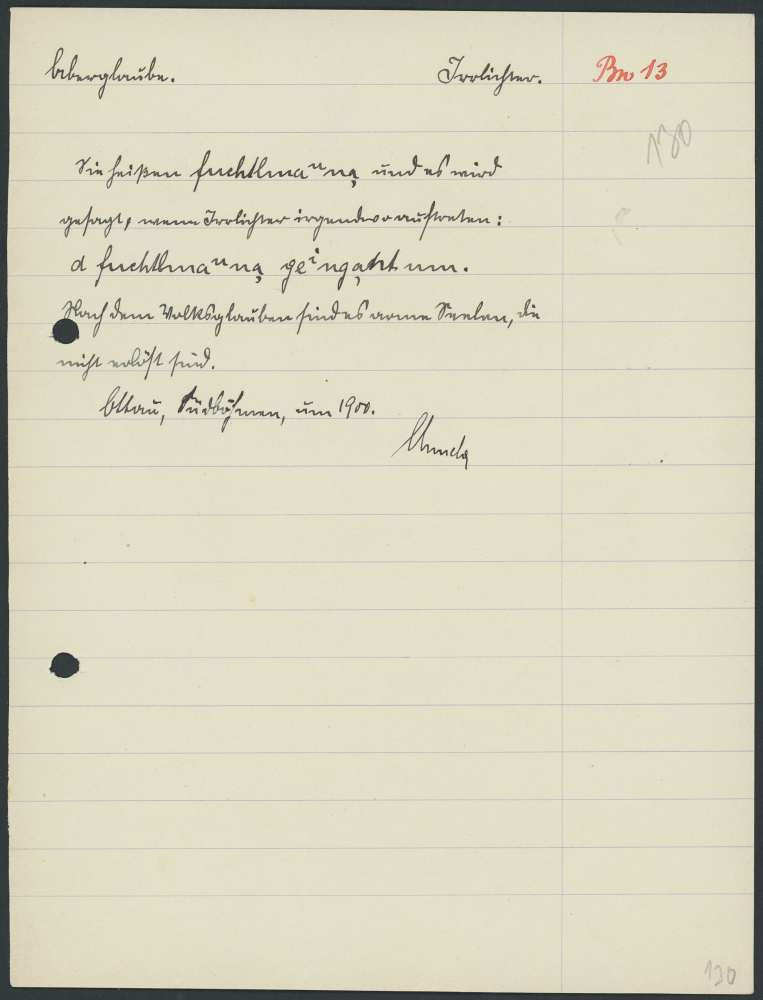 Aberglaube. Irrlichter. Bm 13
130
Sie heißen fuchtlmaⁿna̦ und es wird
gesagt, wenn Irrlichter irgendwo auftreten:
d fuchtlmaⁿna̦ geⁱnga̦nt um.
Nach dem Volksglauben sind es arme Seelen, die
nicht erlöst sind.
Ottau, Südböhmen, um 1900.
130